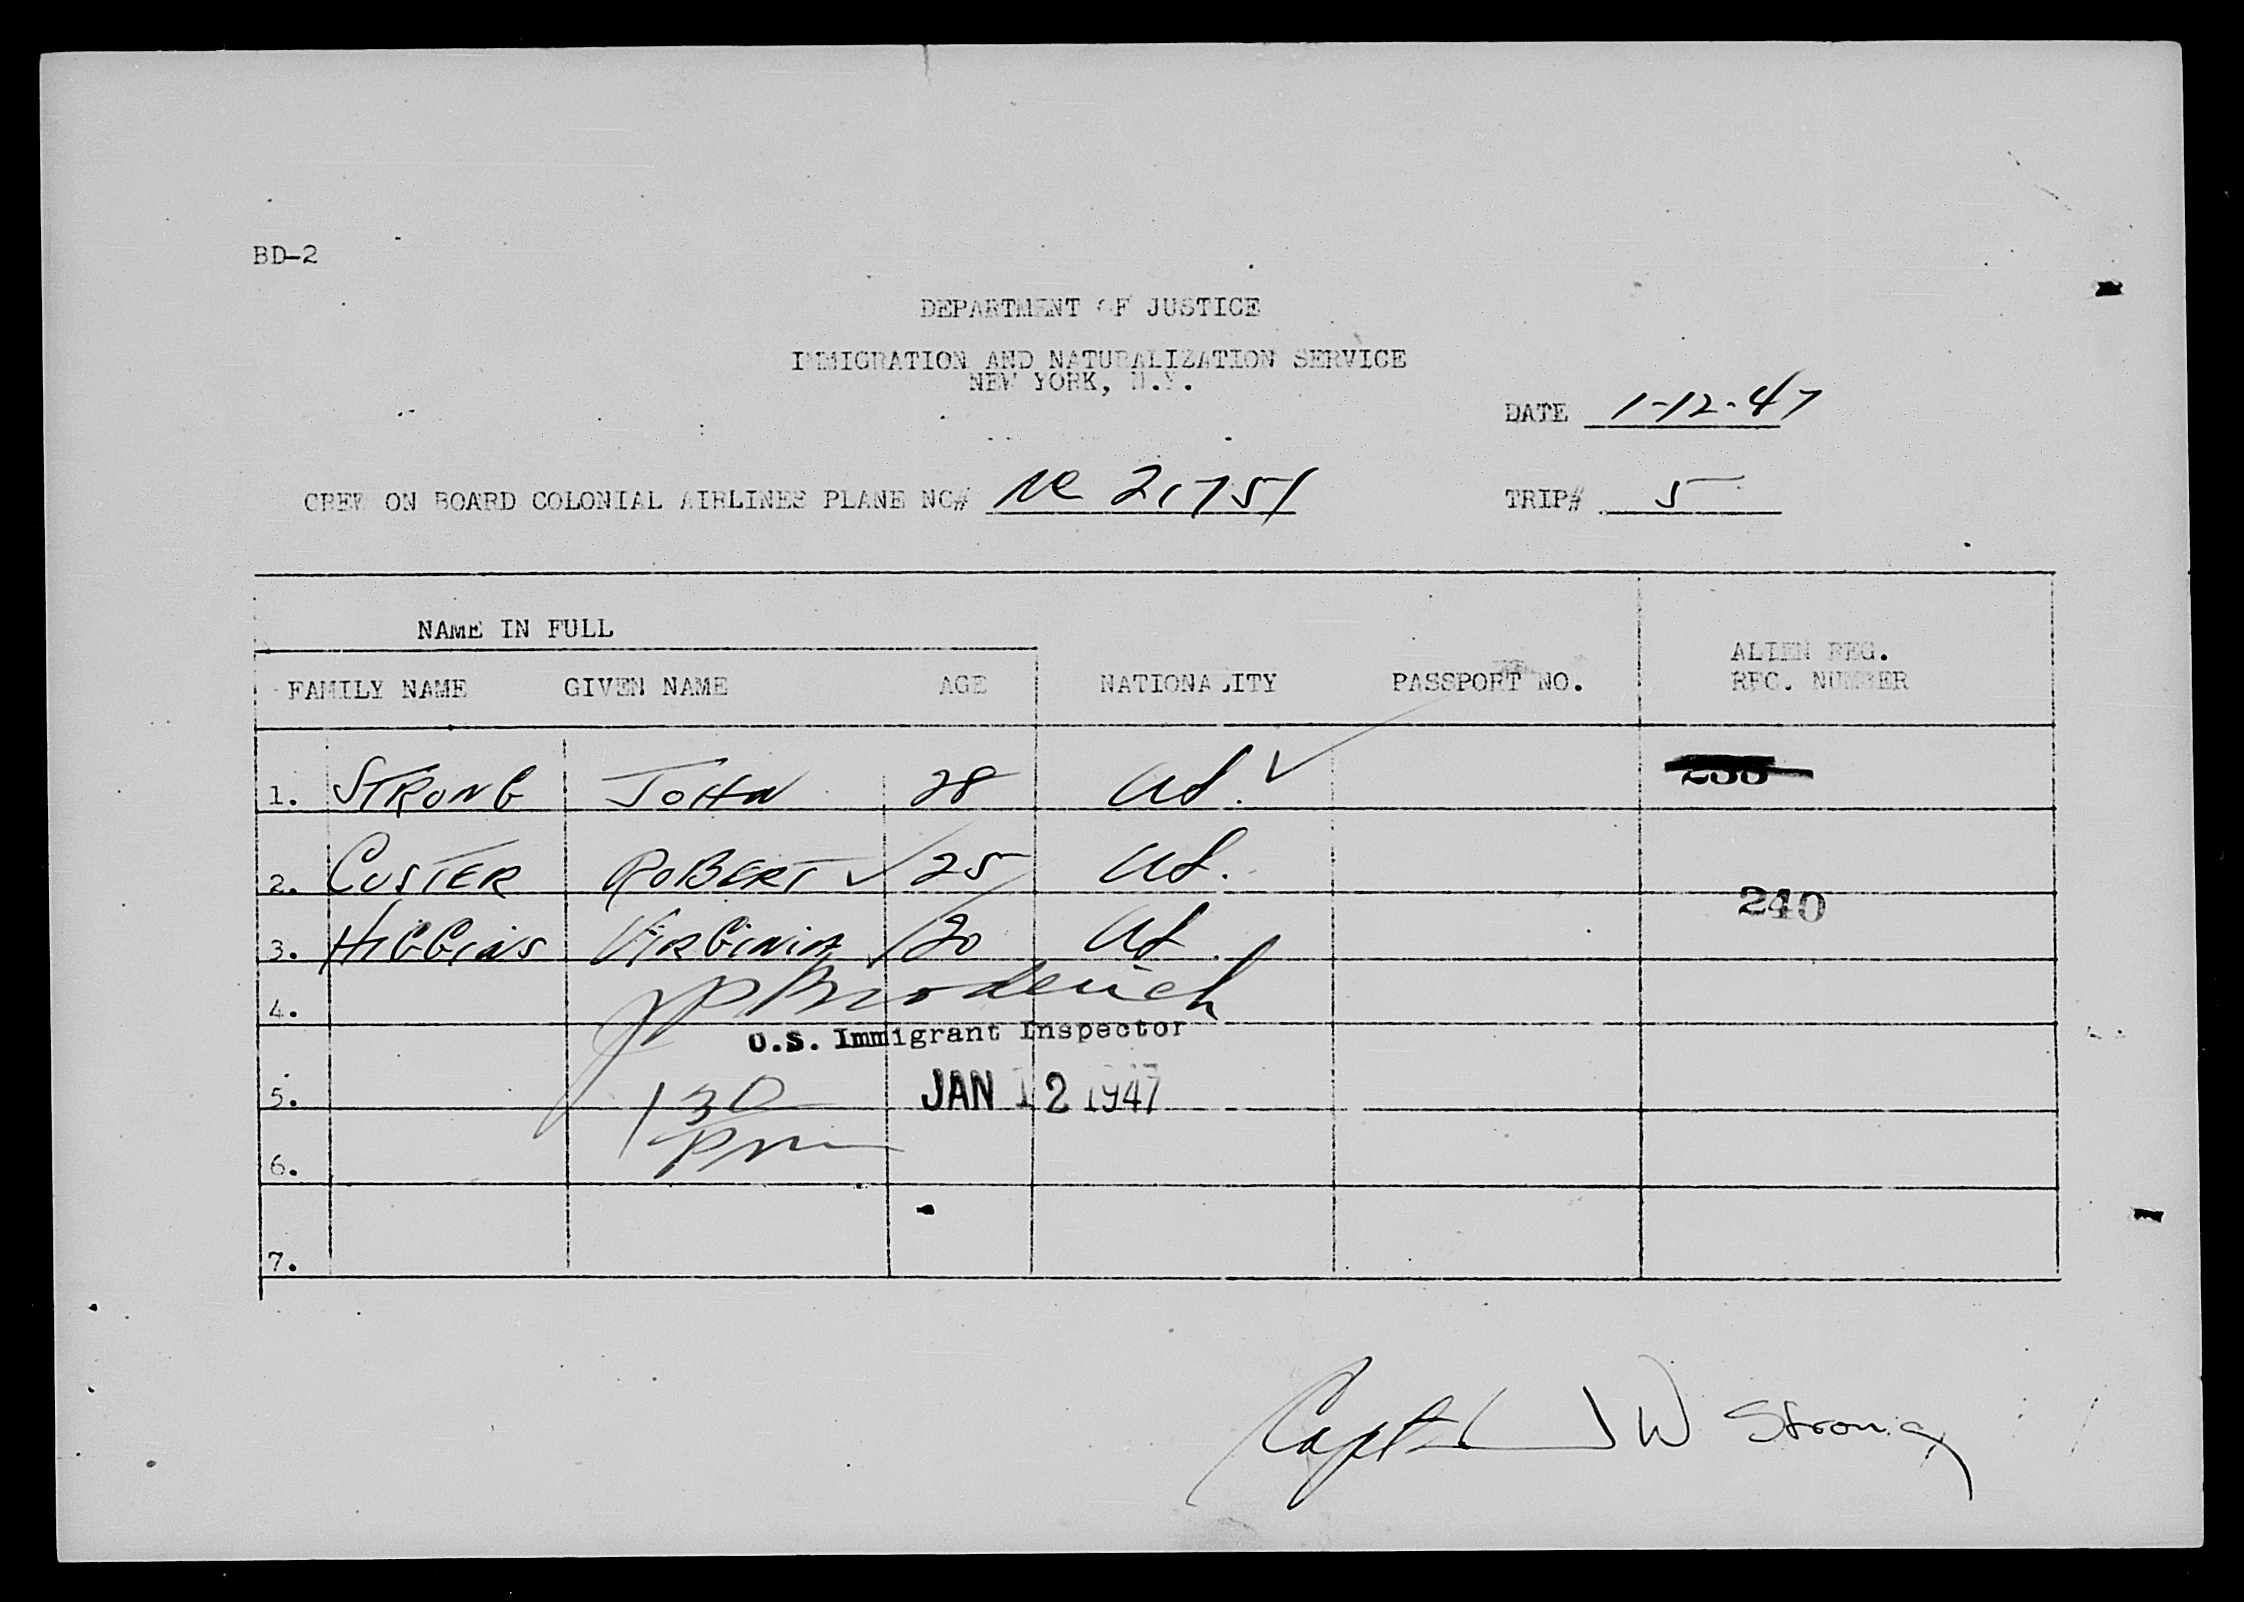 BD-2
DEPARTMENT OF JUSTICE
IMMIGRATION AND NATURALIZATION SERVICE
NEW YORK, N.Y.
DATE 1-12-47
CREW ON BOARD COLONIAL AIRLINES PLANE NO# NC 21751 TRIP# 5
NAME IN FULL
ALIEN REG.
FAMILY NAME GIVEN NAME AGE NATIONALITY PASSPORT NO. REC. NUMBER
1. STRONG JOHN 28 US. ✓
2. CUSTER ROBERT ✓ 25 US.
240
3. HIGGINS VIRGINIA ✓ 20 US.
4. JP Broderick
U.S. Immigrant Inspector
5. 130 JAN 12 1947
6. PM
7.
Capt. J W Strong